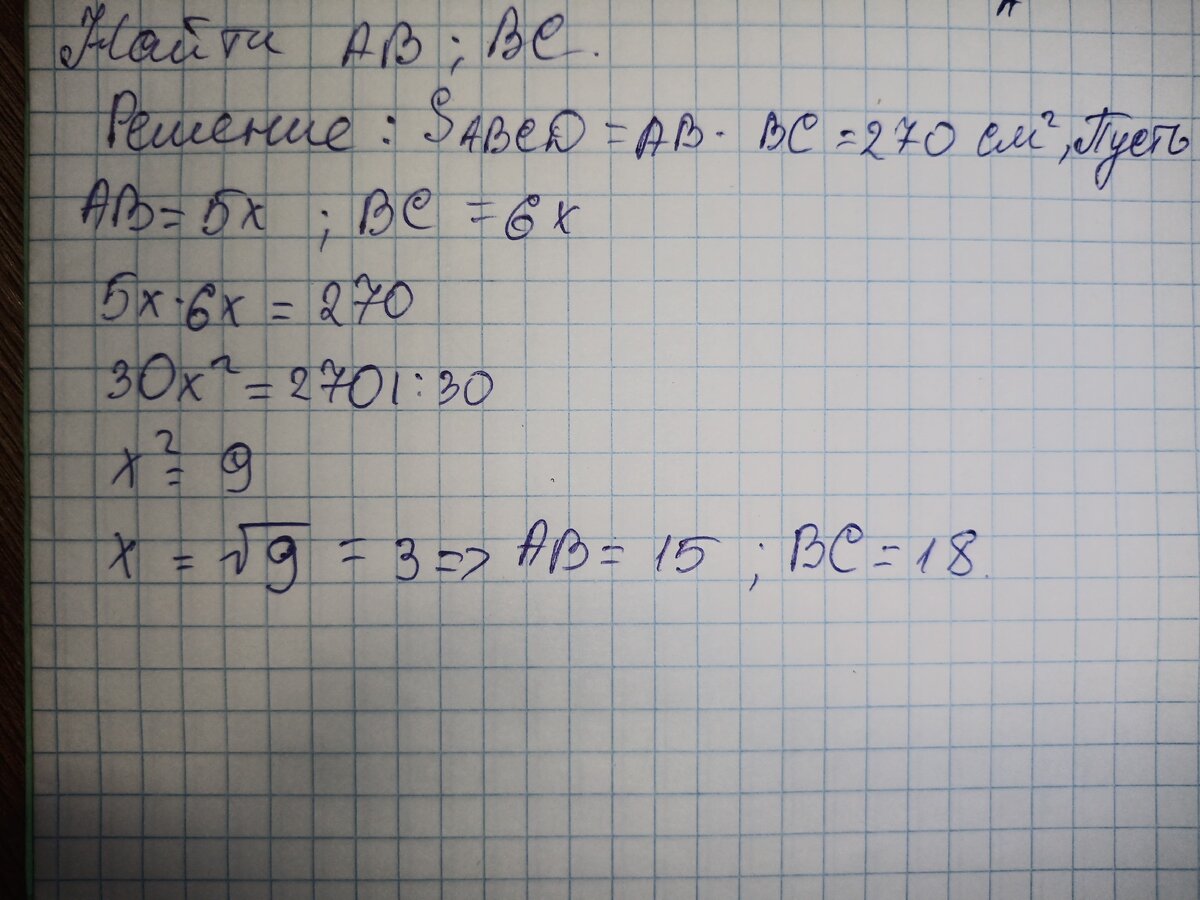 Найти AB ; BC.
Решение : S ABCD = AB · BC = 270 см², Пусть
AB = 5x ; BC = 6x
5x · 6x = 270
30x² = 270 | : 30
x² = 9
x = √9 = 3 => AB = 15 ; BC = 18.